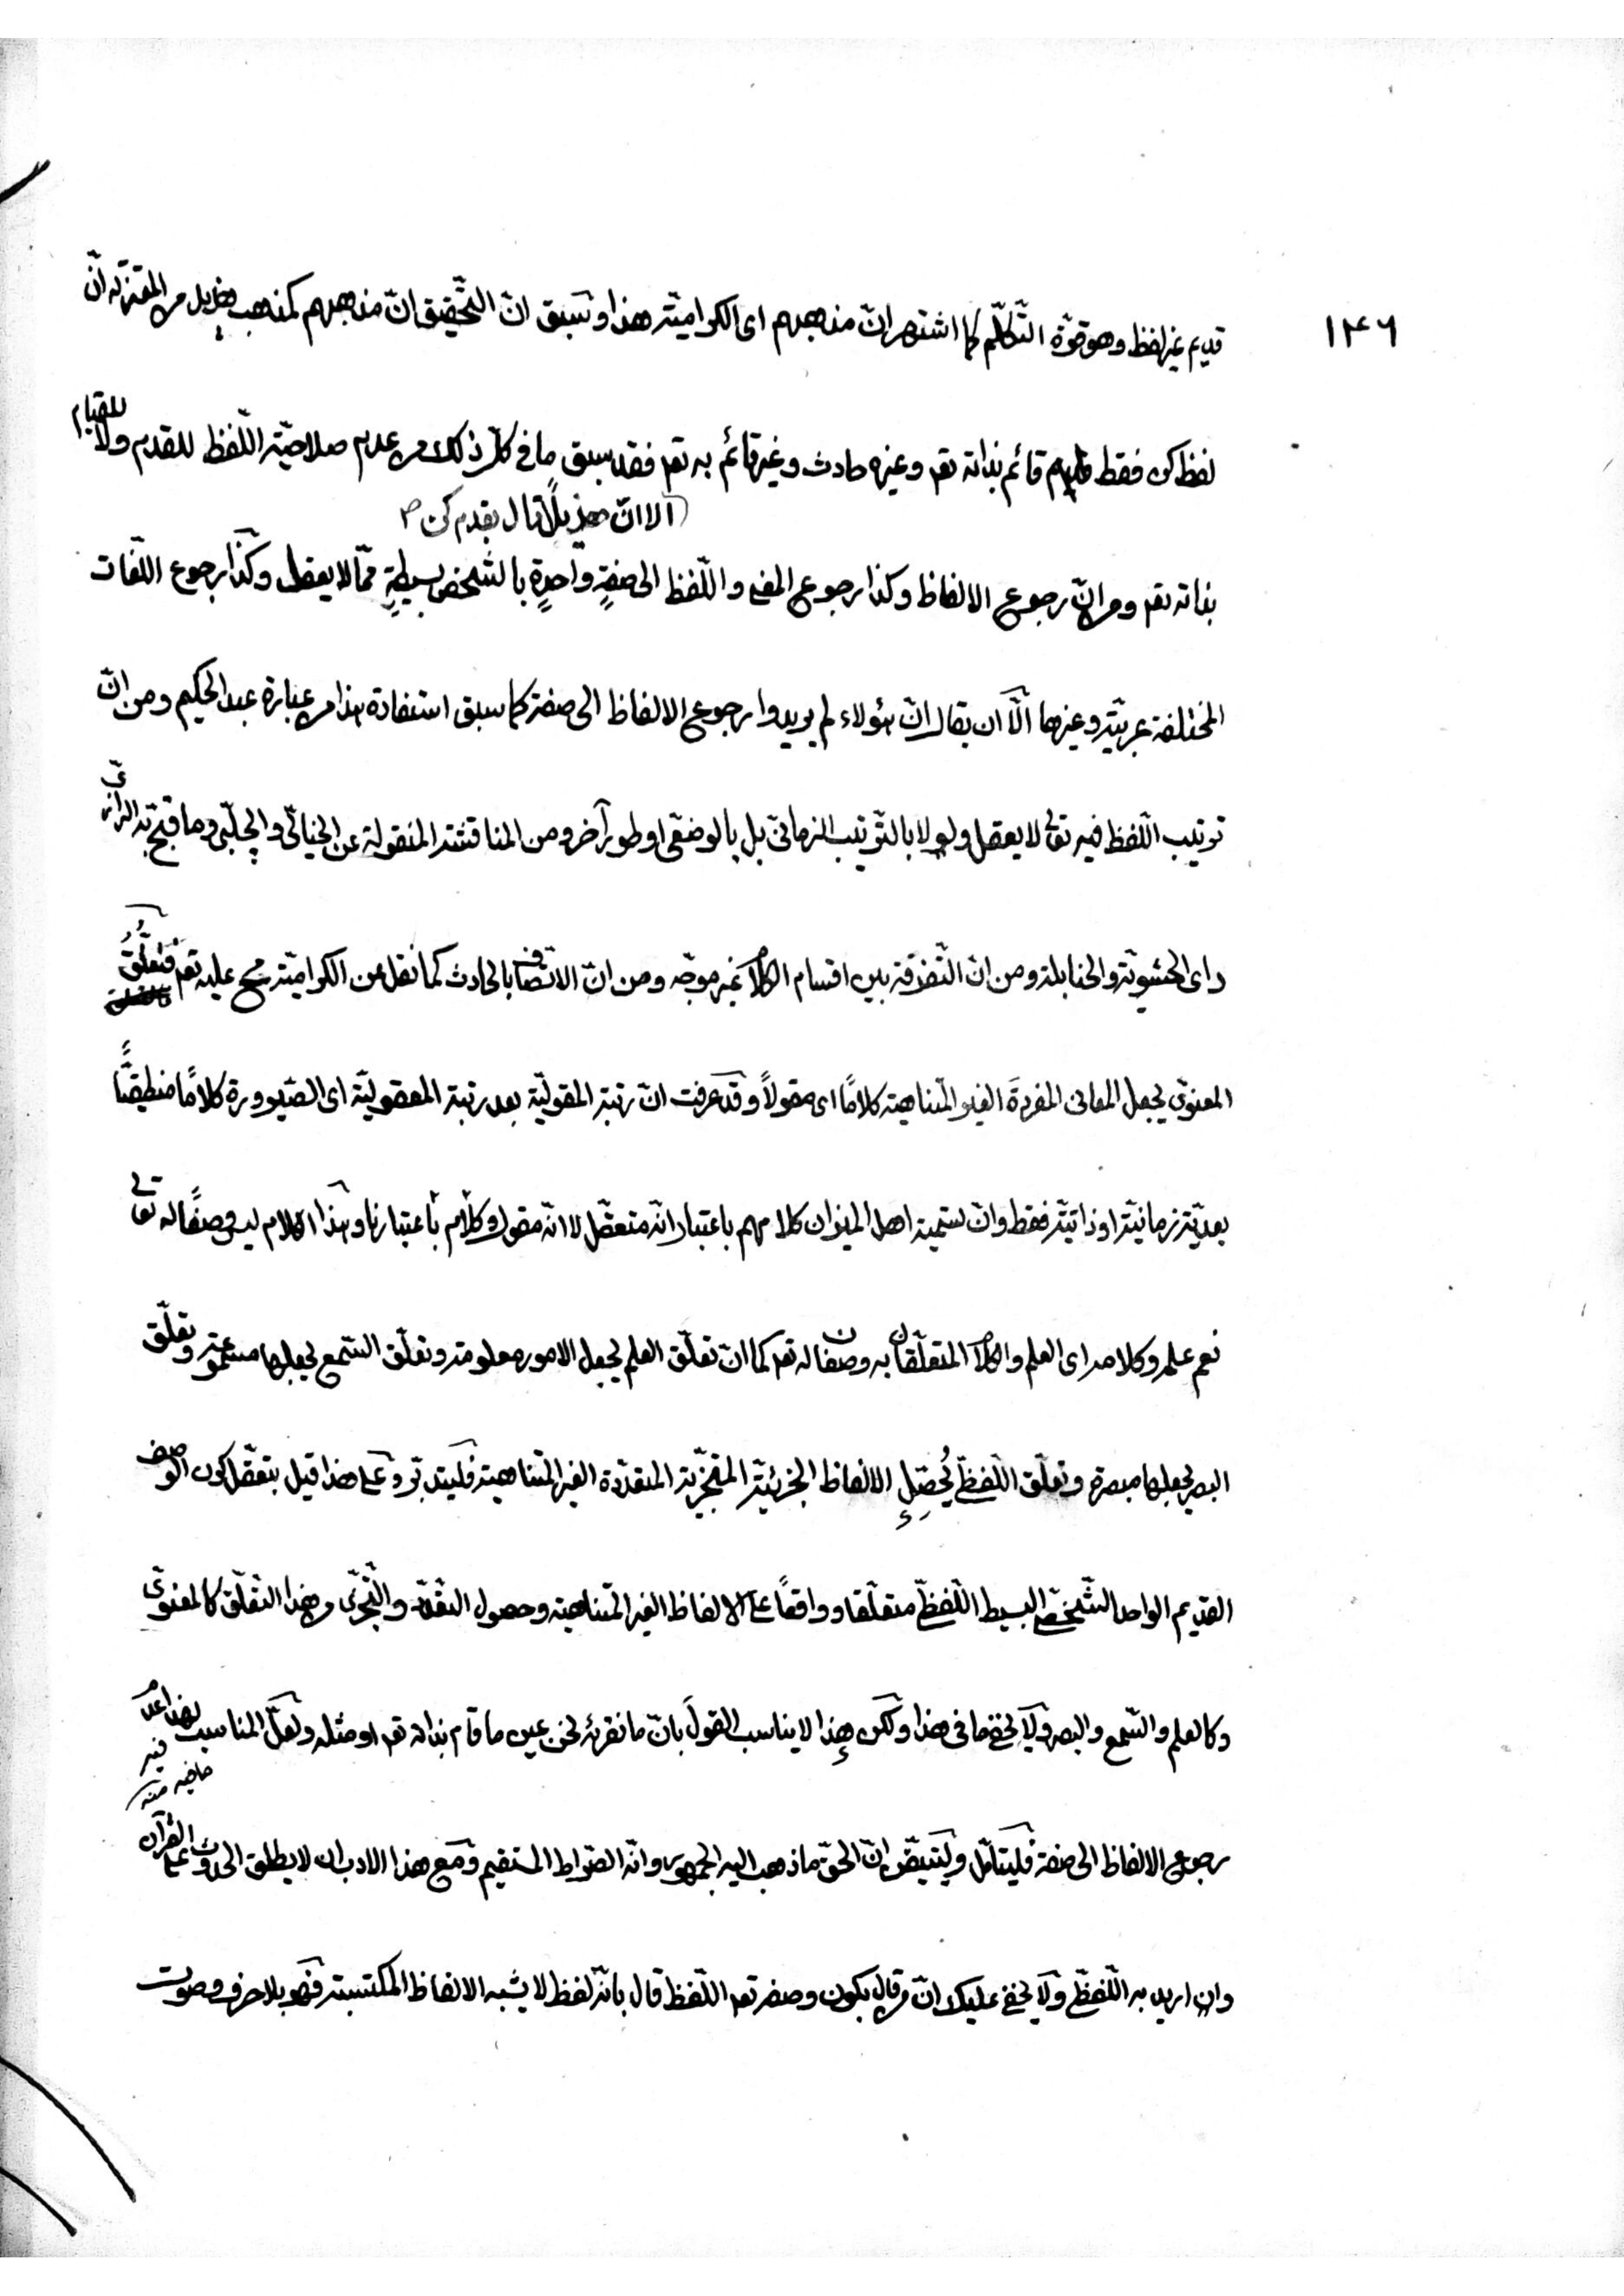 ١٤٦
قديم غير لفظ وهو قوّة التّكلّم كما اشتهر انّ مذهبهم اى الكراميّة هذا وسبق انّ التّحقيق انّ مذهبهم كمذهب هذيل من المعتزلة انّ
لفظ كن فقط قائم بذاته تعـ وغيره حادث وغير قائم به تعـ فقد سبق ما فى كلّ ذلك من عدم صلاحيّة اللّفظ للقدم ولا للقيام
الا انّ هذيلًا قال بقدم كن
بذاته تعـ ومن انّ رجوع الالفاظ وكذا رجوع المعنى واللّفظ الى صفةٍ واحدةٍ بالشّخص بسيطةٍ ممّا لا يعقل وكذا رجوع اللّغات
المختلفة عربيّة وغيرها الّا ان يقال انّ هؤلاء لم يريدوا رجوع الالفاظ الى صفة كما سبق استفادة هذا من عبارة عبد الحكيم ومن انّ
ترتيب اللّفظ فيه تعالى لا يعقل ولو لا بالتّرتيب الزمانىّ بل بالوضعى او طور آخر ومن المناقشة المنقولة عن الخيالىّ والچلبّى وما قبح به الرّازىّ
راى الحشويّة والحنابلة ومن انّ التّفرقة بين اقسام الكلام غير موجّه ومن انّ الاتّصاف بالحادث كما نقل عن الكراميّة مح عليه تعـ فتعلّقُ
المعنوىّ يجعل المعانى المفردةَ الغير المتناهية كلامًا اى مقولًا وقد عرفت انّ رتبة المقوليّة بعد رتبة المعقوليّة اى الصّيرورة كلامًا منطقيًّا
بعديّة زمانيّة او ذاتيّة فقط وانّ تسمية اهل الميزان كلامهم باعتبار انّه متعقّل لا انّه مقول وكلام باعتبارنا وهذا الكلام ليس وصفًا له تعالى
نعم علمه وكلامه اى العلم والكلام المتعلّقان به وصفان له تعـ كما انّ تعلّق العلم يجعل الامور معلومة وتعلّق السّمع يجعلها مسموعة وتعلّق
البصر يجعلها مبصرة وتعلّق اللّفظىّ يُحصّل الالفاظ الجزئيّة المتجزّية المتعدّدة الغير المتناهية فليتدبّر وعلى هذا قيل بتعقّل كون الوصف
القديم الواحد الشّخصىّ البسيط اللّفظىّ متعلّقا وواقعًا على الالفاظ الغير المتناهية وحصول التعدّد والتّجزّى من هذا التعلّق كالمعنوىّ
وكالعلم والسّمع والبصر ولا يخفى ما فى هذا ولكن هذا لا يناسب القولَ بانّ ما نقرئه نحن عين ما قام بذاته تعـ او مثله ولعلّ المناسب لهذا عدم
فيه ما فيه منه
رجوع الالفاظ الى صفة فليتأمّل وليتيقّن انّ الحقّ ما ذهب اليه الجمهور وانّه الصّراط المستقيم ومع هذا الادب ان لا يطلق الحدوث على القرآن
وان اريد به اللّفظىّ ولا يخفى عليك انّ من قال بكون وصفه تعـ اللّفظ قال بانّه لفظ لا يشبه الالفاظ المكتسبة فهو بلا حرف وصوت